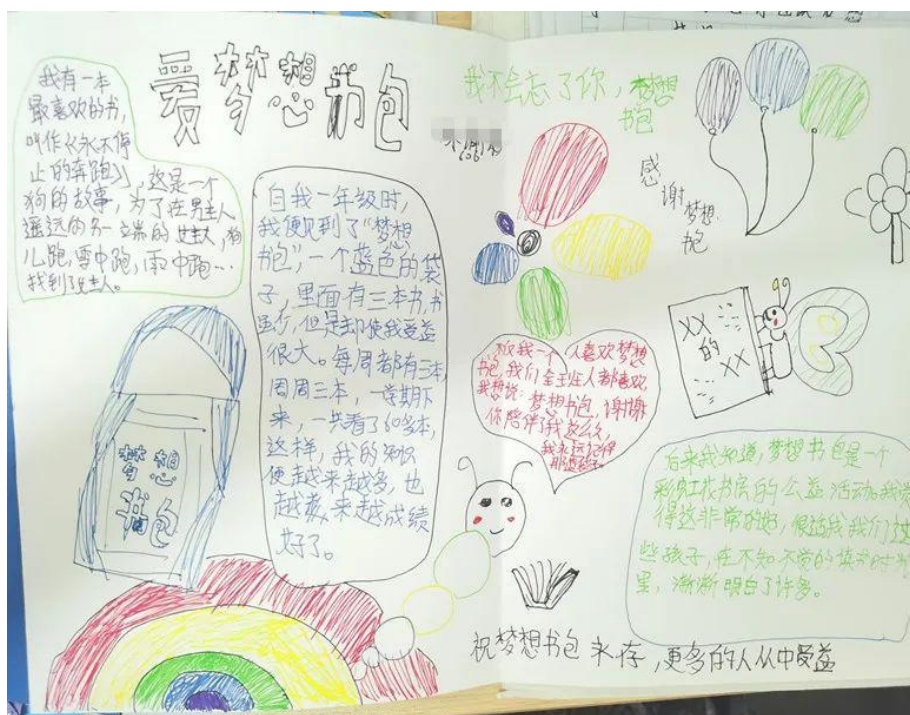 爱梦想书包
我有一本
最喜欢的书，
叫作《永不停
止的奔跑》，这是一个
狗的故事，为了在男主人
遥远的另一端的女主人，狗
儿跑，雪中跑，雨中跑…
找到了主人。
自我一年级时，
我便见到了“梦想
书包”，一个蓝色的袋
子，里面有三本书，书
虽少，但是却使我受益
很大。每周都有三本，
周周三本，一学期下
来，一共看了60多本，
这样，我的知识
便越来越多，也
越来越成绩
好了。
梦想
书包
我不会忘了你，梦想
书包
感
谢
梦想
书包
XX
的
XX
不仅我一个人喜欢梦想
书包，我们全班人都喜欢，
我想说：梦想书包，谢谢
你陪伴了我这么久，
我永远记得
后来我知道，梦想书包是一个
彩虹花书房的公益活动。我觉
得这非常的好，
些孩子，在不知不觉的读书时光
里，渐渐明白了许多。
祝梦想书包永存，更多的人从中受益